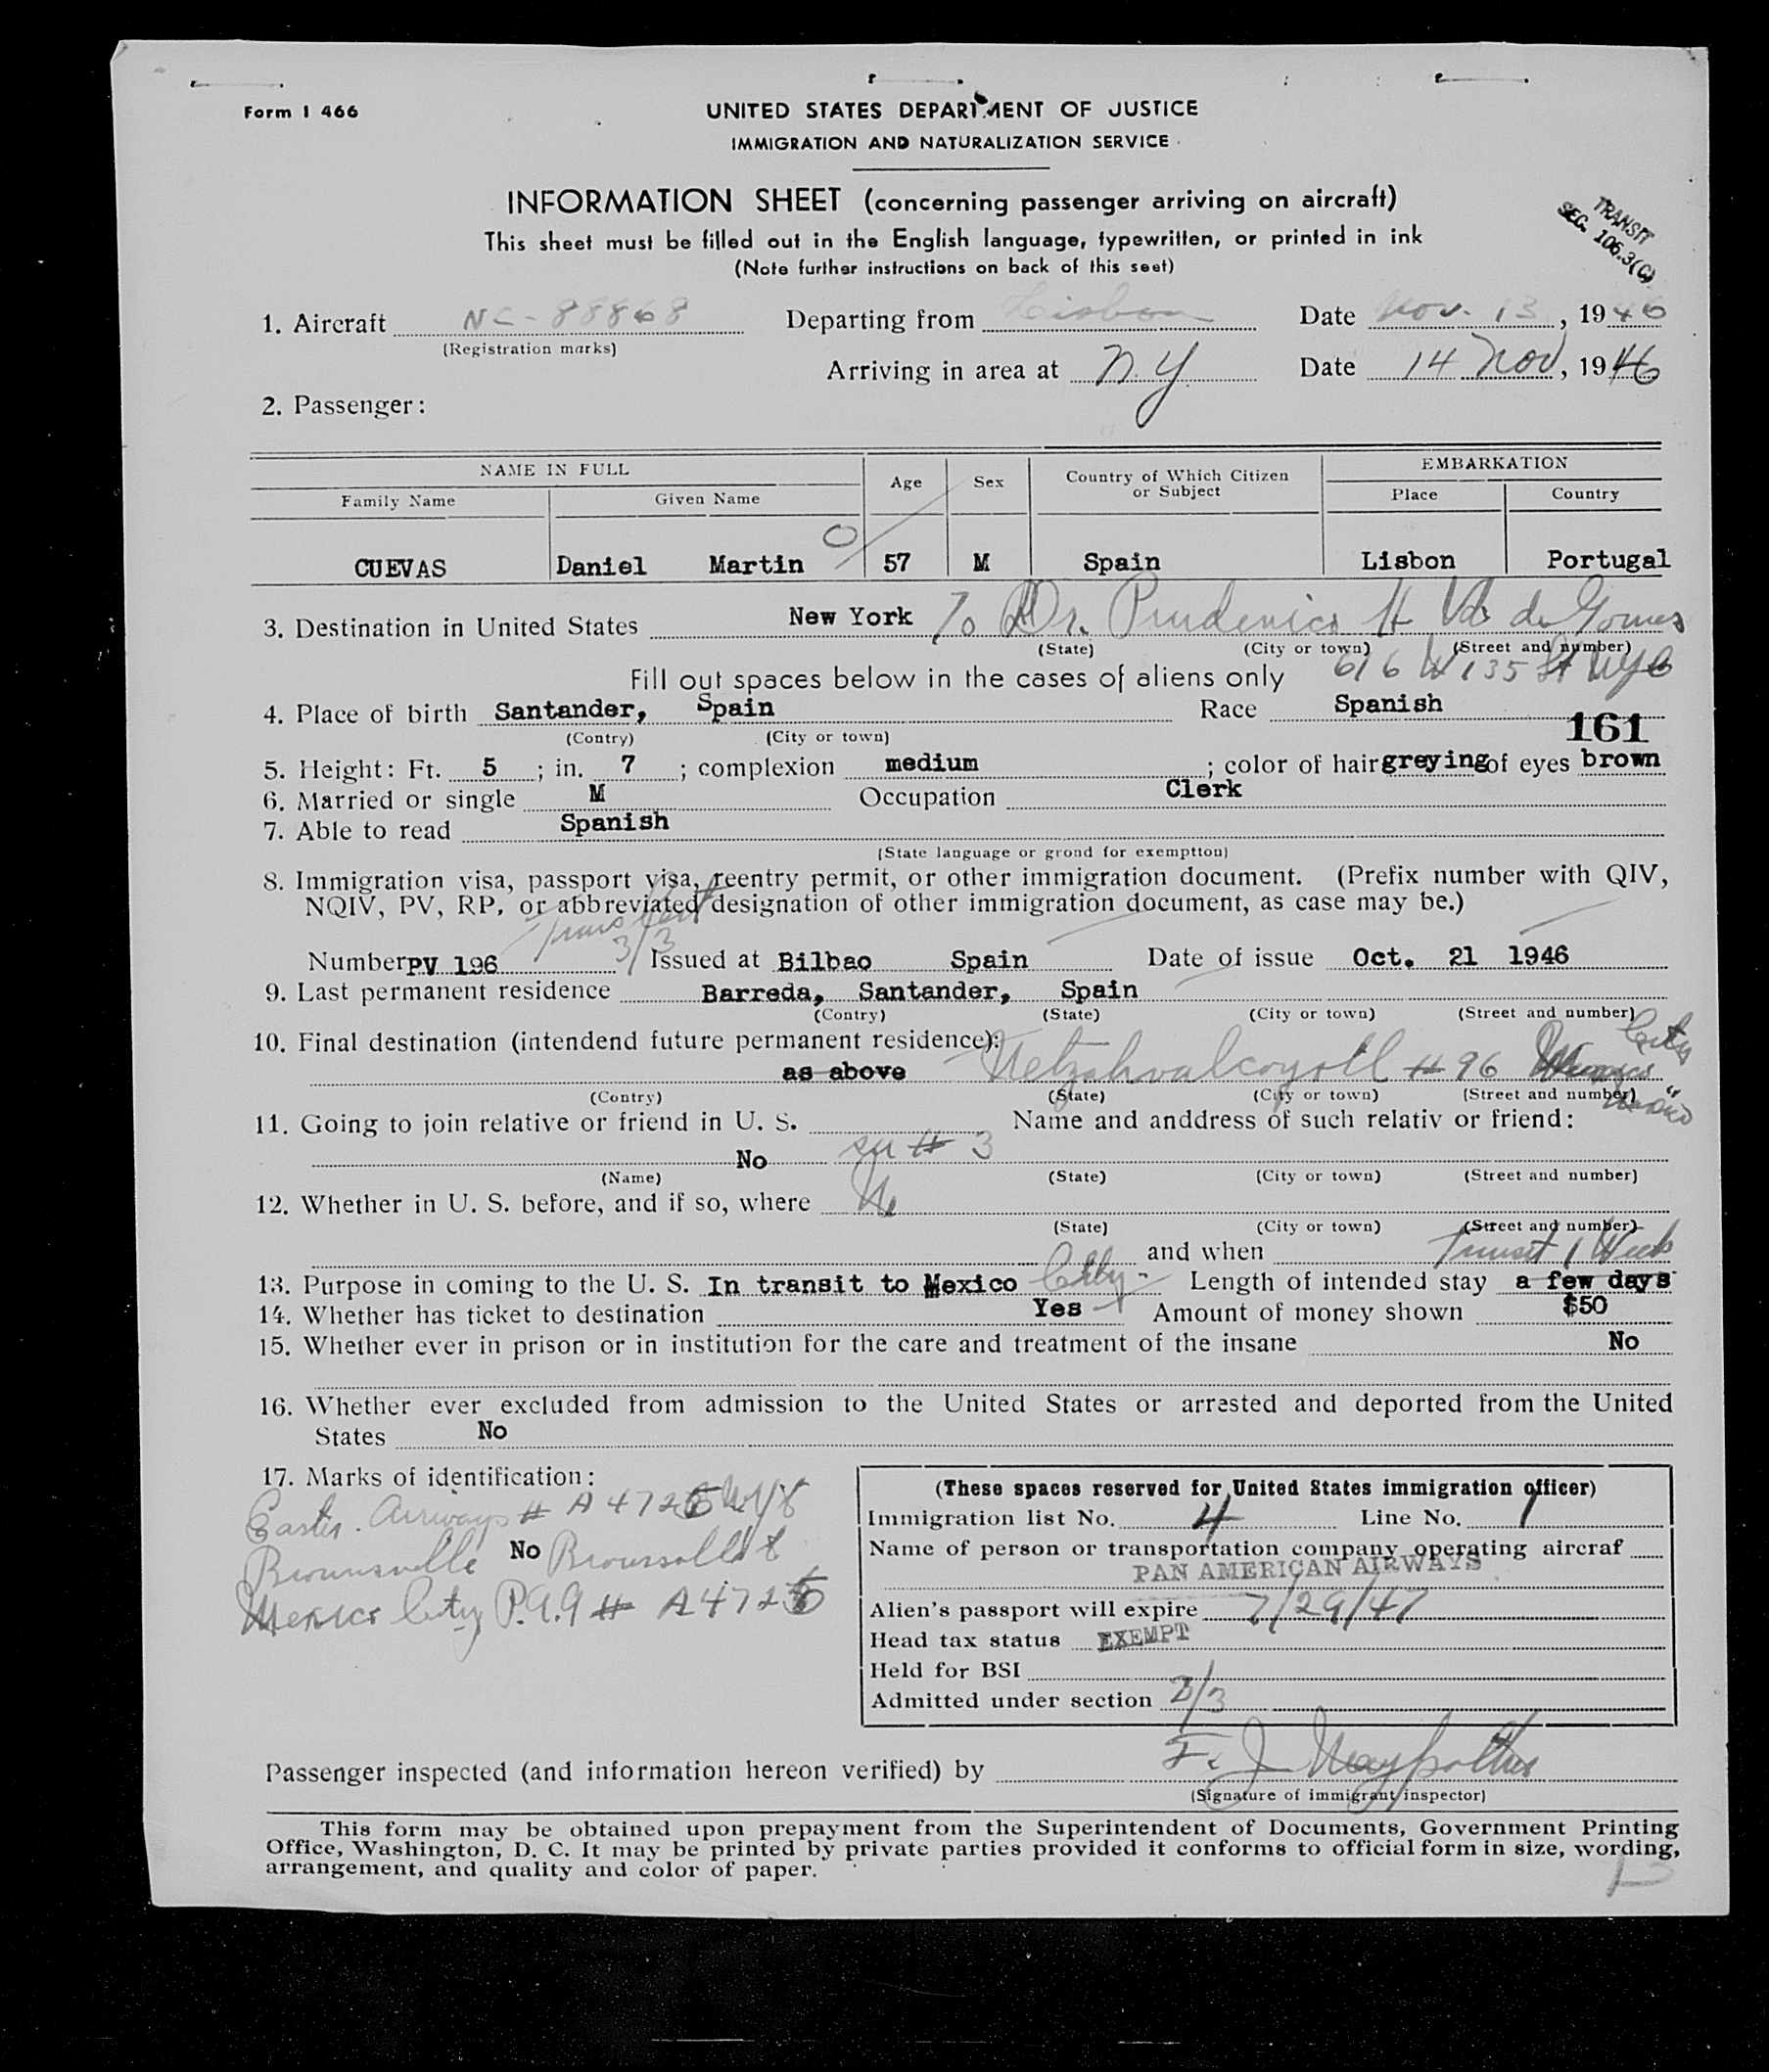 Form I 466
UNITED STATES DEPARTMENT OF JUSTICE
IMMIGRATION AND NATURALIZATION SERVICE
INFORMATION SHEET (concerning passenger arriving on aircraft)
TRANSIT
SEC. 106.3(C)
This sheet must be filled out in the English language, typewritten, or printed in ink
(Note further instructions on back of this seet)
1. Aircraft NC-88868 Departing from Lisbon Date Nov. 13, 1946
(Registration marks)
Arriving in area at N.Y. Date 14 Nov, 1946
2. Passenger:
NAME IN FULL Age Sex Country of Which Citizen or Subject EMBARKATION
Family Name Given Name Place Country
CUEVAS Daniel Martin 57 M Spain Lisbon Portugal
3. Destination in United States New York To Dr. H de Gomes
(State) (City or town) (Street and number)
Fill out spaces below in the cases of aliens only 616 W 135 St NYC
4. Place of birth Santander, Spain Race Spanish
(Contry) (City or town)
161
5. Height: Ft. 5 ; in. 7 ; complexion medium ; color of hair greying of eyes brown
6. Married or single M Occupation Clerk
7. Able to read Spanish
(State language or grond for exemptton)
8. Immigration visa, passport visa, reentry permit, or other immigration document. (Prefix number with QIV,
NQIV, PV, RP, or abbreviated designation of other immigration document, as case may be.)
3/3
Number PV 196 Issued at Bilbao Spain Date of issue Oct. 21 1946
9. Last permanent residence Barreda, Santander, Spain
(Contry) (State) (City or town) (Street and number)
10. Final destination (intendend future permanent residence):
as above # 96 City
(Contry) (State) (City or town) (Street and number)
11. Going to join relative or friend in U. S. Name and anddress of such relativ or friend:
No # 3
(Name) (State) (City or town) (Street and number)
12. Whether in U. S. before, and if so, where No
(State) (City or town) (Street and number)
and when Transit 1 Week
13. Purpose in coming to the U. S. In transit to Mexico City- Length of intended stay a few days
14. Whether has ticket to destination Yes Amount of money shown $50
15. Whether ever in prison or in institution for the care and treatment of the insane No
16. Whether ever excluded from admission to the United States or arrested and deported from the United
States No
17. Marks of identification:
Airways # A 4725
Brownsville No
Mexico City P.A.A # A4725
(These spaces reserved for United States immigration officer)
Immigration list No. 4 Line No. 1
Name of person or transportation company operating aircraf
PAN AMERICAN AIRWAYS
Alien's passport will expire 7/29/47
Head tax status EXEMPT
Held for BSI
Admitted under section 3/3
Passenger inspected (and information hereon verified) by F. J.
(Signature of immigrant inspector)
This form may be obtained upon prepayment from the Superintendent of Documents, Government Printing
Office, Washington, D. C. It may be printed by private parties provided it conforms to official form in size, wording,
arrangement, and quality and color of paper.